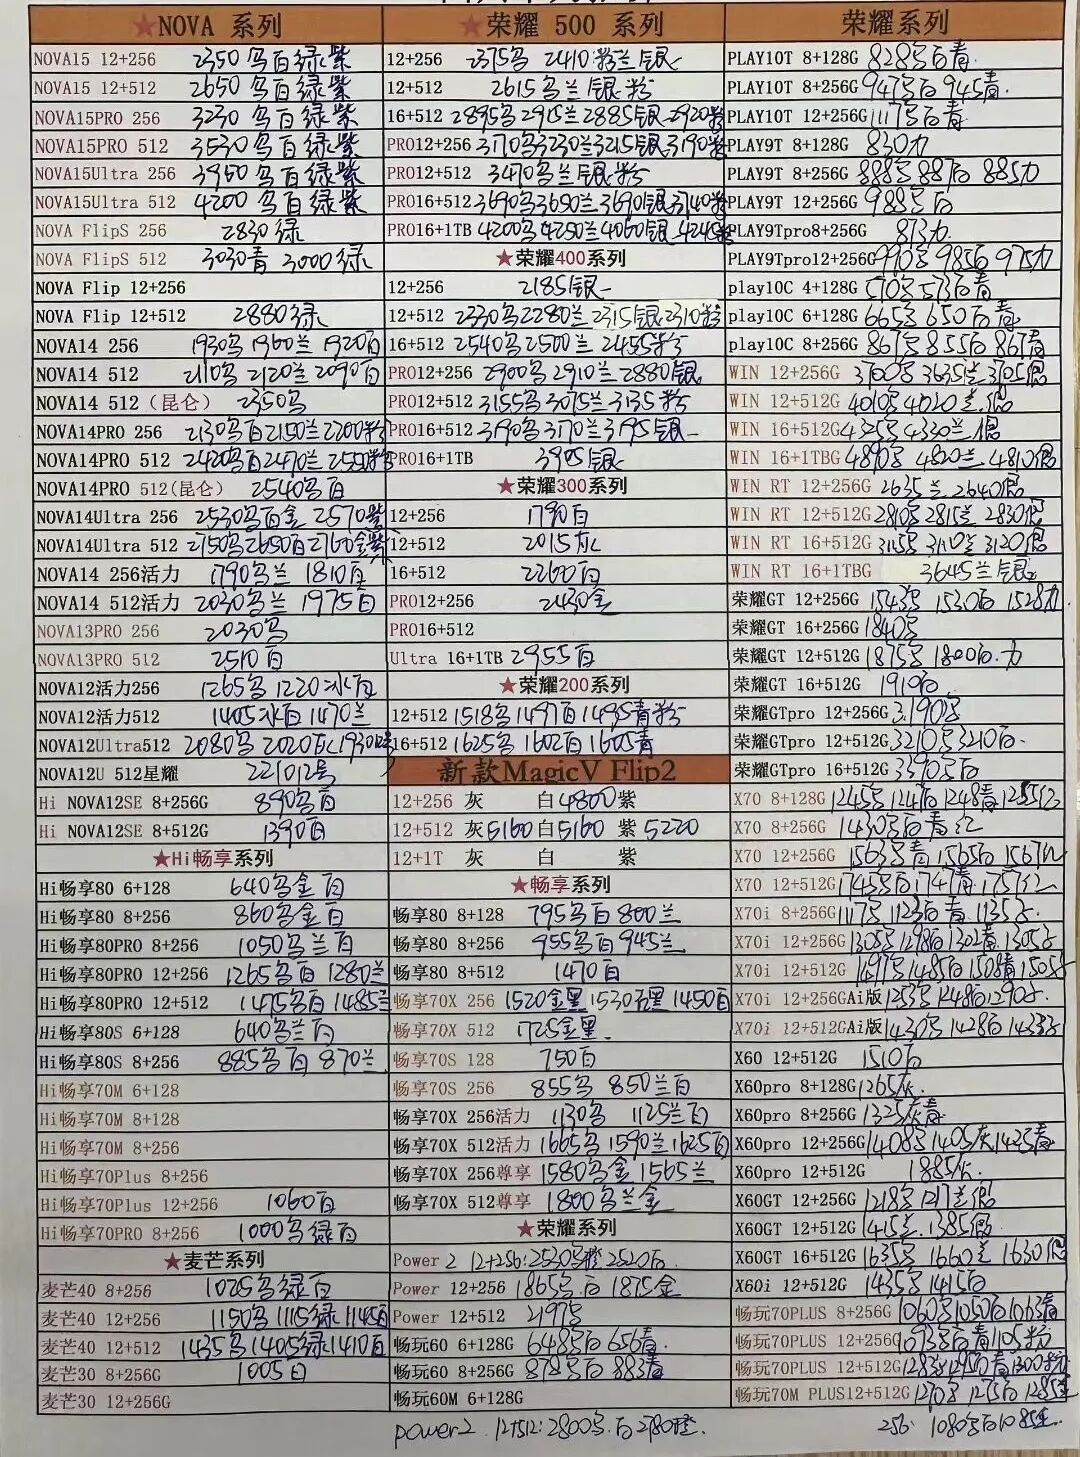 ★NOVA 系列
NOVA15 12+256 2350乌百绿紫
NOVA15 12+512 2650乌百绿紫
NOVA15PRO 256 3230乌百绿紫
NOVA15PRO 512 3530乌百绿紫
NOVA15Ultra 256 3950乌百绿紫
NOVA15Ultra 512 4200乌百绿紫
NOVA FlipS 256 2830绿
NOVA FlipS 512 3030青 3000绿
NOVA Flip 12+256
NOVA Flip 12+512 2880绿
NOVA14 256 1930乌 1960兰 1920百
NOVA14 512 2110乌 2120兰 2090百
NOVA14 512（昆仑） 2350乌
NOVA14PRO 256 2130乌百2150兰2200粉
NOVA14PRO 512 2420乌百2470兰2550粉
NOVA14PRO 512(昆仑) 2540乌百
NOVA14Ultra 256 2530乌百金 2570紫
NOVA14Ultra 512 2750乌2650百2760金紫
NOVA14 256活力 1790乌兰 1810百
NOVA14 512活力 2030乌兰 1975百
NOVA13PRO 256 2030乌
NOVA13PRO 512 2510百
NOVA12活力256 1265乌 1220冰百
NOVA12活力512 1405冰百 1470兰
NOVA12Ultra512 2080乌 2020灰1930
NOVA12U 512星耀 221012号
Hi NOVA12SE 8+256G 890乌百
Hi NOVA12SE 8+512G 1390百
★Hi畅享系列
Hi畅享80 6+128 640乌金百
Hi畅享80 8+256 860乌金百
Hi畅享80PRO 8+256 1050乌兰百
Hi畅享80PRO 12+256 1265乌百 1280兰
Hi畅享80PRO 12+512 1475乌百1485兰
Hi畅享80S 6+128 640乌兰百
Hi畅享80S 8+256 885乌百 870兰
Hi畅享70M 6+128
Hi畅享70M 8+128
Hi畅享70M 8+256
Hi畅享70Plus 8+256
Hi畅享70Plus 12+256 1060百
Hi畅享70PRO 8+256 1000乌绿百
★麦芒系列
麦芒40 8+256 1025乌绿百
麦芒40 12+256 1150乌 1115绿 1145百
麦芒40 12+512 1435乌1405绿1410百
麦芒30 8+256G 1005百
麦芒30 12+256G
★荣耀 500 系列
12+256 2375乌 2410粉兰银
12+512 2615乌兰银粉
16+512 2895乌2915兰2885银2920粉
PRO12+256 3170乌3230兰3215银3190粉
PRO12+512 3470乌兰银粉
PRO16+512 3690乌3650兰3690银3740粉
PRO16+1TB 4200乌4250兰4060银4245粉
★荣耀400系列
12+256 2185银
12+512 2330乌2280兰2315银2310粉
16+512 2540乌2500兰2455粉
PRO12+256 2900乌 2910兰2880银
PRO12+512 3155乌3075兰3135粉
PRO16+512 3190乌3170兰3195银
PRO16+1TB 3905银
★荣耀300系列
12+256 1790百
12+512 2015灰
16+512 2260百
PRO12+256 2430金
PRO16+512
Ultra 16+1TB 2955百
★荣耀200系列
12+512 1518乌1497百1495青粉
16+512 1625乌1602百1605青
新款MagicV Flip2
12+256 灰 白4800紫
12+512 灰5160白5160 紫5220
12+1T 灰 白 紫
★畅享系列
畅享80 8+128 795乌百 800兰
畅享80 8+256 955乌百945兰
畅享80 8+512 1470百
畅享70X 256 1520金黑1530 黑1450百
畅享70X 512 1725金黑
畅享70S 128 750百
畅享70S 256 855乌 850兰百
畅享70X 256活力 1130乌 1125兰百
畅享70X 512活力 1665乌1590兰1625百
畅享70X 256尊享 1580乌金1565兰
畅享70X 512尊享 1800乌兰金
★荣耀系列
Power 2 12+256:2530乌橙2520百
Power 12+256 1865乌百1875金
Power 12+512 2197乌
畅玩60 6+128G 648乌百656青
畅玩60 8+256G 878乌百883青
畅玩60M 6+128G
power2 12+512:2800乌百2780橙
荣耀系列
PLAY10T 8+128G 828乌百青
PLAY10T 8+256G 947乌百945青
PLAY10T 12+256G1117乌百青
PLAY9T 8+128G 830力
PLAY9T 8+256G 888乌887百885力
PLAY9T 12+256G 988乌百
PLAY9Tpro8+256G 813力
PLAY9Tpro12+256G990乌985百975力
play10C 4+128G 570乌573百青
play10C 6+128G 665乌650百青
play10C 8+256G 867乌855百867青
WIN 12+256G 3700乌3635兰3705
WIN 12+512G 4010乌4020兰
WIN 16+512G4325乌4330兰
WIN 16+1TBG4890乌4820兰4810
WIN RT 12+256G 2635兰2640
WIN RT 12+512G 2810乌2815兰2830
WIN RT 16+512G 3115乌3110兰3120
WIN RT 16+1TBG 3645兰银
荣耀GT 12+256G 1543乌1530百1528力
荣耀GT 16+256G 1840乌
荣耀GT 12+512G 1875乌1800百力
荣耀GT 16+512G 1910百
荣耀GTpro 12+256G3190乌
荣耀GTpro 12+512G3210乌3210百
荣耀GTpro 16+512G3390乌百
X70 8+128G 1245乌1241百1248青1255红
X70 8+256G 1430乌百青红
X70 12+256G 1563乌青1565百1567红
X70 12+512G1745乌百1747青1757红
X70i 8+256G1117乌1123百青1135
X70i 12+256G1305乌1298百1302青1305
X70i 12+512G1497乌1485百1508青1505
X70i 12+256GAi版1253乌1248百1290
X70i 12+512GAi版1430乌1428百1433
X60 12+512G 1510百
X60pro 8+128G1265灰
X60pro 8+256G 1325灰青
X60pro 12+256G1408乌1405灰1425青
X60pro 12+512G 1885灰
X60GT 12+256G 1218乌1217兰
X60GT 12+512G 1415兰1385
X60GT 16+512G 1635乌1660兰1630
X60i 12+512G 1435乌1415百
畅玩70PLUS 8+256G1060乌1050百1063青
畅玩70PLUS 12+256G1093乌百青1105粉
畅玩70PLUS 12+512G1283乌1295百青1300粉
畅玩70M PLUS12+512G1270乌1275百1285
256: 1080乌百1085